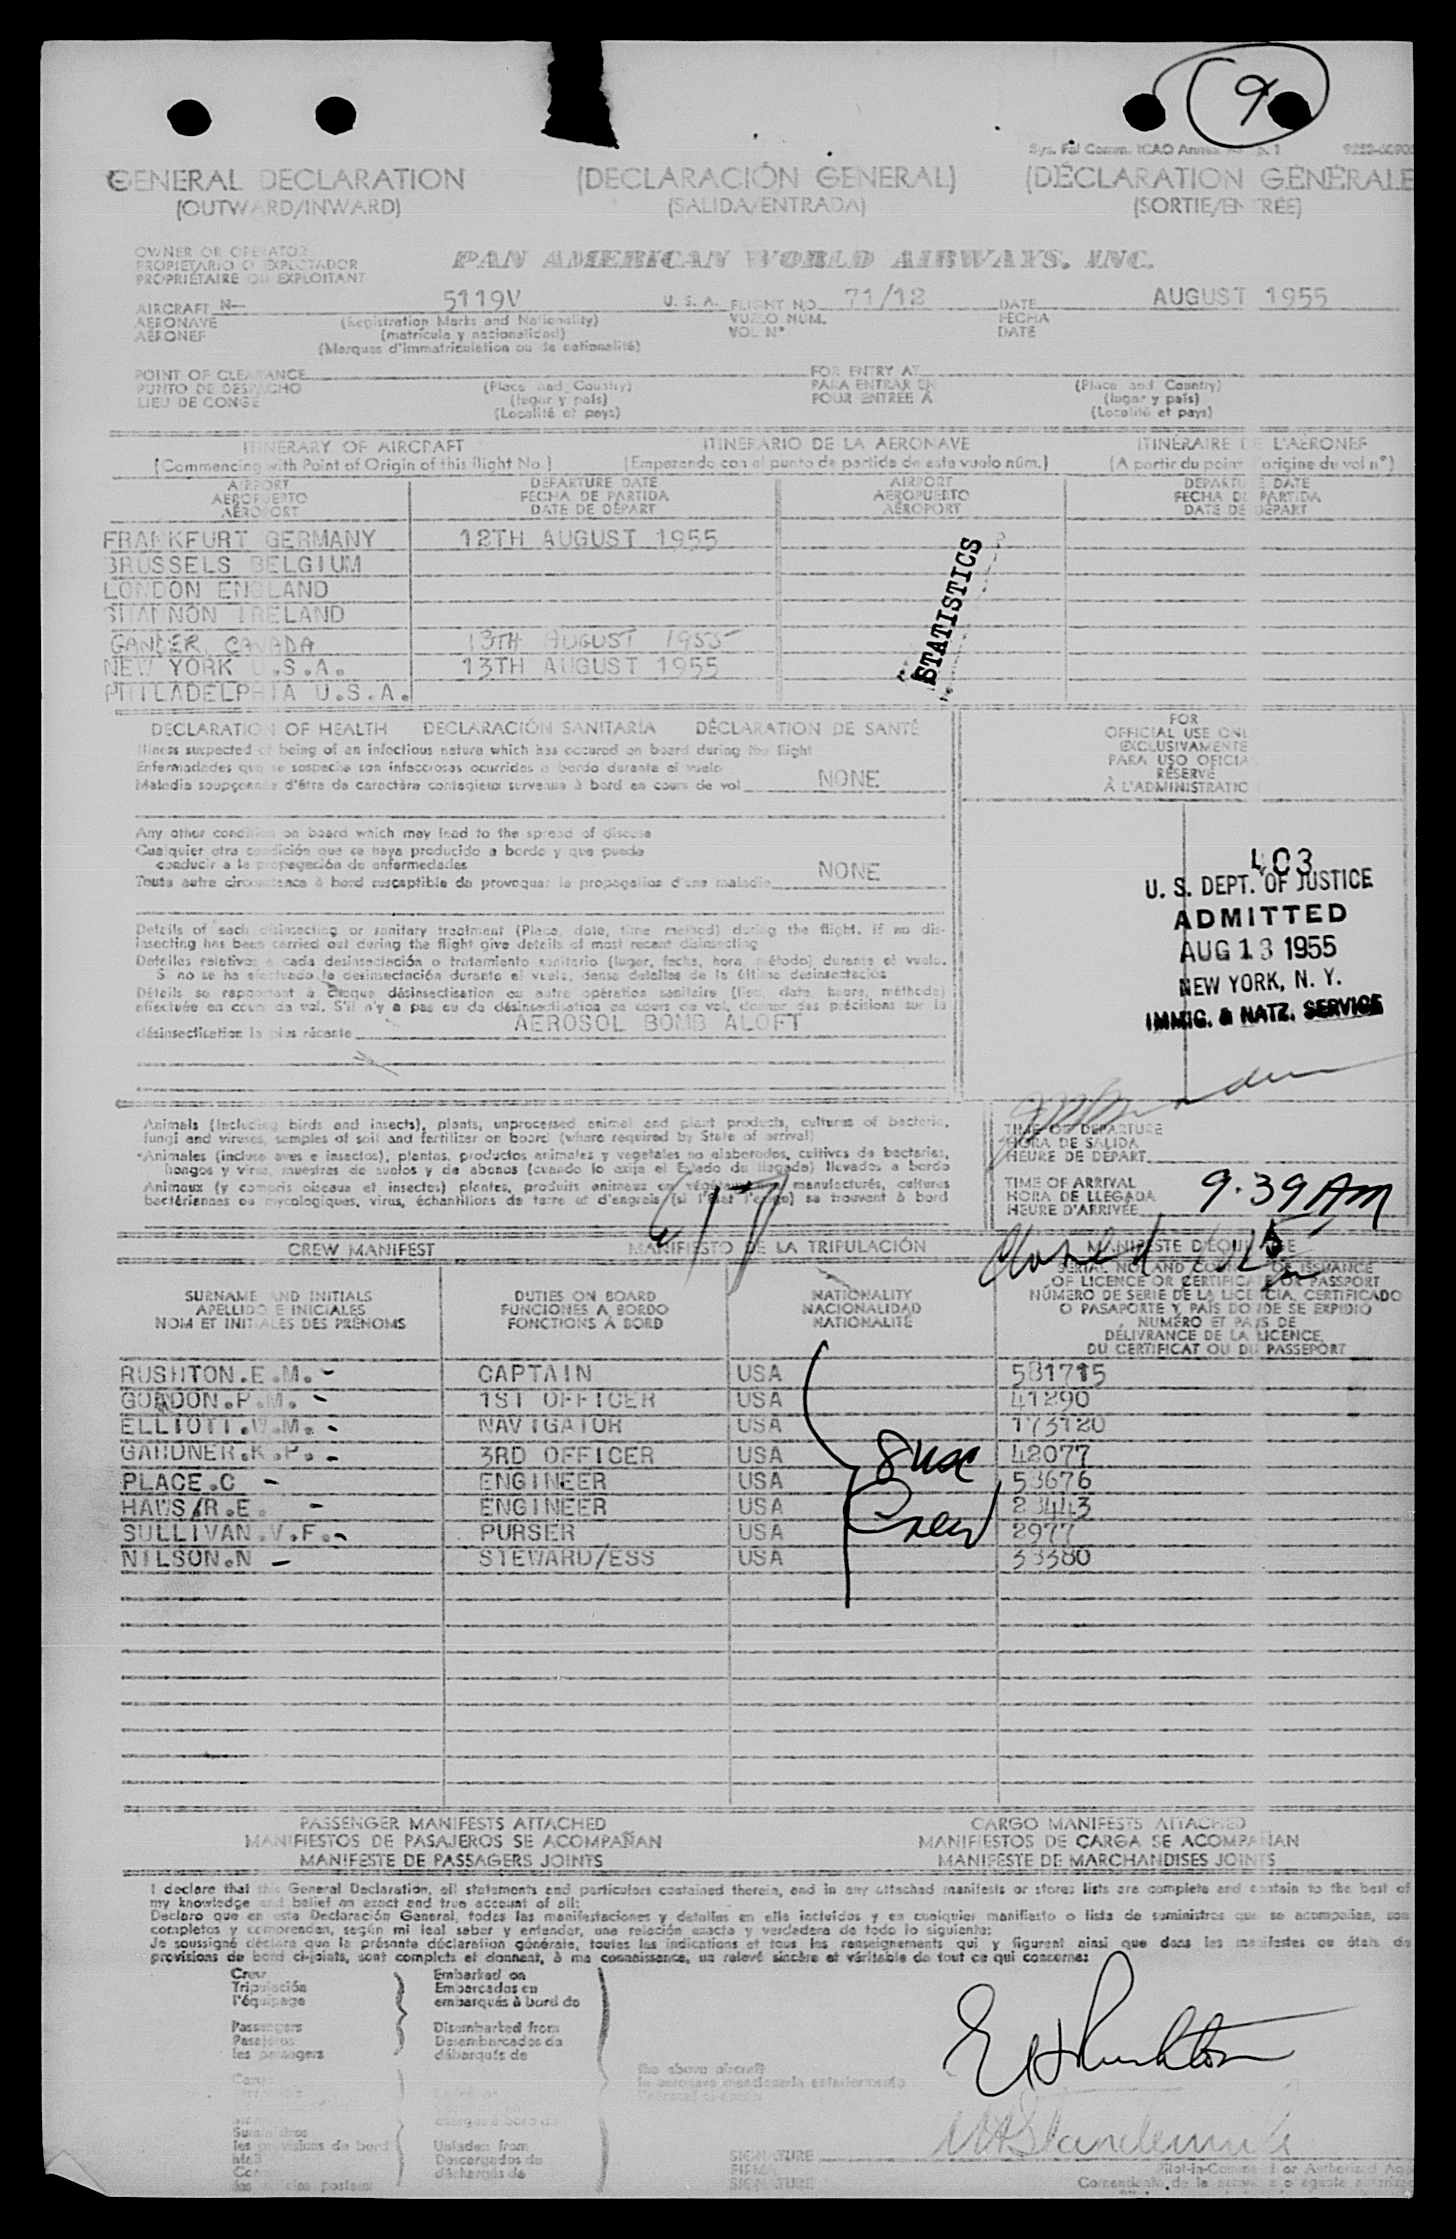 9
Sys. Fal Comm. ICAO Annex
GENERAL DECLARATION (DECLARACIÓN GENERAL) (DÉCLARATION GÉNÉRALE
(OUTWARD/INWARD) (SALIDA/ENTRADA) (SORTIE/ENTRÉE)
OWNER OR OPERATOR
PROPIETARIO O EXPLOTADOR
PROPRIÉTAIRE OU EXPLOITANT
PAN AMERICAN WORLD AIRWAYS, INC.
AIRCRAFT N- 5119V U. S. A. FLIGHT NO. 71/12 DATE AUGUST 1955
AERONAVE (Registration Marks and Nationality) VUELO NUM. FECHA
AÉRONEF (matrícula y nacionalidad) VOL N° DATE
(Marques d'immatriculation ou de nationalité)
POINT OF CLEARANCE FOR ENTRY AT
PUNTO DE DESPACHO (Place and Country) PARA ENTRAR EN (Place and Country)
LIEU DE CONGÉ (lugar y país) POUR ENTRÉE A (lugar y país)
(Localité et pays) (Localité et pays)
ITINERARY OF AIRCRAFT ITINERARIO DE LA AERONAVE ITINÉRAIRE DE L'AÉRONEF
(Commencing with Point of Origin of this flight No.) (Empezando con el punto de partida de este vuelo núm.) (A partir du point d'origine du vol n°)
AIRPORT DEPARTURE DATE AIRPORT DEPARTURE DATE
AEROPUERTO FECHA DE PARTIDA AEROPUERTO FECHA DE PARTIDA
AÉROPORT DATE DE DÉPART AÉROPORT DATE DE DÉPART
FRANKFURT GERMANY 12TH AUGUST 1955
BRUSSELS BELGIUM
LONDON ENGLAND
SHANNON IRELAND
GANDER, CANADA 13TH AUGUST 1955
NEW YORK U.S.A. 13TH AUGUST 1955
PHILADELPHIA U.S.A.
STATISTICS
DECLARATION OF HEALTH DECLARACIÓN SANITARIA DÉCLARATION DE SANTÉ
Illness suspected of being of an infectious nature which has occured on board during the flight
Enfermedades que se sospeche son infecciosas ocurridas a bordo durante el vuelo
Maladie soupçonnée d'être de caractère contagieux survenue à bord en cours de vol NONE
Any other condition on board which may lead to the spread of disease
Cualquier otra condición que se haya producido a bordo y que pueda
conducir a la propagación de enfermedades
Toute autre circonstance à bord susceptible de provoquer la propagation d'une maladie NONE
Details of each disinsecting or sanitary treatment (Place, date, time method) during the flight. If no dis-
insecting has been carried out during the flight give details of most recent disinsecting
Detalles relativos a cada desinsectación o tratamiento sanitario (lugar, fecha, hora, método) durante el vuelo.
Si no se ha efectuado la desinsectación durante el vuelo, dense detalles de la última desinsectación
Détails se rapportant à chaque désinsectisation ou autre opération sanitaire (lieu, date, heure, méthode)
effectuée en cours de vol. S'il n'y a pas eu de désinsectisation en cours de vol, donner des précisions sur la
désinsectisation la plus récente AEROSOL BOMB ALOFT
FOR
OFFICIAL USE ONL
EXCLUSIVAMENTE
PARA USO OFICIA
RÉSERVÉ
À L'ADMINISTRATIO
403
U. S. DEPT. OF JUSTICE
ADMITTED
AUG 13 1955
NEW YORK, N. Y.
IMMIG. & NATZ. SERVICE
Animals (Including birds and insects), plants, unprocessed animal and plant products, cultures of bacteria,
fungi and viruses, samples of soil and fertilizer on board (where required by State of arrival)
Animales (incluso aves e insectos), plantas, productos animales y vegetales no elaborados, cultivos de bacterias,
hongos y virus, muestras de suelos y de abonos (cuando lo exija el Estado de llegada) llevados a bordo
Animaux (y compris oiseaux et insectes) plantes, produits animaux ou végétaux manufacturés, cultures
bactériennes ou mycologiques, virus, échantillons de terre et d'engrais (si l'état l'exige) se trouvant à bord
TIME OF DEPARTURE
HORA DE SALIDA
HEURE DE DÉPART
TIME OF ARRIVAL
HORA DE LLEGADA 9.39 AM
HEURE D'ARRIVÉE
CREW MANIFEST MANIFIESTO DE LA TRIPULACIÓN MANIFESTE D'ÉQUIPAGE
SURNAME AND INITIALS
APELLIDO E INICIALES
NOM ET INITIALES DES PRÉNOMS
DUTIES ON BOARD
FUNCIONES A BORDO
FONCTIONS À BORD
NATIONALITY
NACIONALIDAD
NATIONALITÉ
SERIAL NO. AND COUNTRY OF ISSUANCE
OF LICENCE OR CERTIFICATE OR PASSPORT
NÚMERO DE SERIE DE LA LICENCIA, CERTIFICADO
O PASAPORTE Y PAÍS DONDE SE EXPIDIÓ
NUMÉRO ET PAYS DE
DÉLIVRANCE DE LA LICENCE,
DU CERTIFICAT OU DU PASSEPORT
RUSHTON.E.M. - CAPTAIN USA 581715
GORDON.P.M. - 1ST OFFICER USA 41290
ELLIOTT.W.M. - NAVIGATOR USA 173120
GARDNER.K.P. - 3RD OFFICER USA 42077
PLACE.C - ENGINEER USA 53676
HAUS/R.E. - ENGINEER USA 23443
SULLIVAN.V.F. - PURSER USA 2977
NILSON.N - STEWARD/ESS USA 33380
8 USC
Crew
PASSENGER MANIFESTS ATTACHED CARGO MANIFESTS ATTACHED
MANIFIESTOS DE PASAJEROS SE ACOMPAÑAN MANIFIESTOS DE CARGA SE ACOMPAÑAN
MANIFESTE DE PASSAGERS JOINTS MANIFESTE DE MARCHANDISES JOINTS
I declare that this General Declaration, all statements and particulars contained therein, and in any attached manifests or stores lists are complete and contain to the best of
my knowledge and belief an exact and true account of all:
Declaro que en esta Declaración General, todas las manifestaciones y detalles en ella incluidos y en cualquier manifiesto o lista de suministros que se acompañan, son
completos y comprenden, según mi leal saber y entender, una relación exacta y verdadera de todo lo siguiente:
Je soussigné déclare que la présente déclaration générale, toutes les indications et tous les renseignements qui y figurent ainsi que dans les manifestes ou états de
provisions de bord ci-joints, sont complets et donnent, à ma connaissance, un relevé sincère et véritable de tout ce qui concerne:
Crew Embarked on
Tripulación Embarcados en
l'équipage embarqués à bord de
Passengers Disembarked from
Pasajeros Desembarcados de
les passagers débarqués de
the above aircraft
la aeronave mencionada anteriormente
Suministros
les provisions de bord Unladen from
Mail Descargados de
déchargés de
E M Rushton
SIGNATURE
FIRMA
SIGNATURE
Pilot-in-Command or Authorized Age